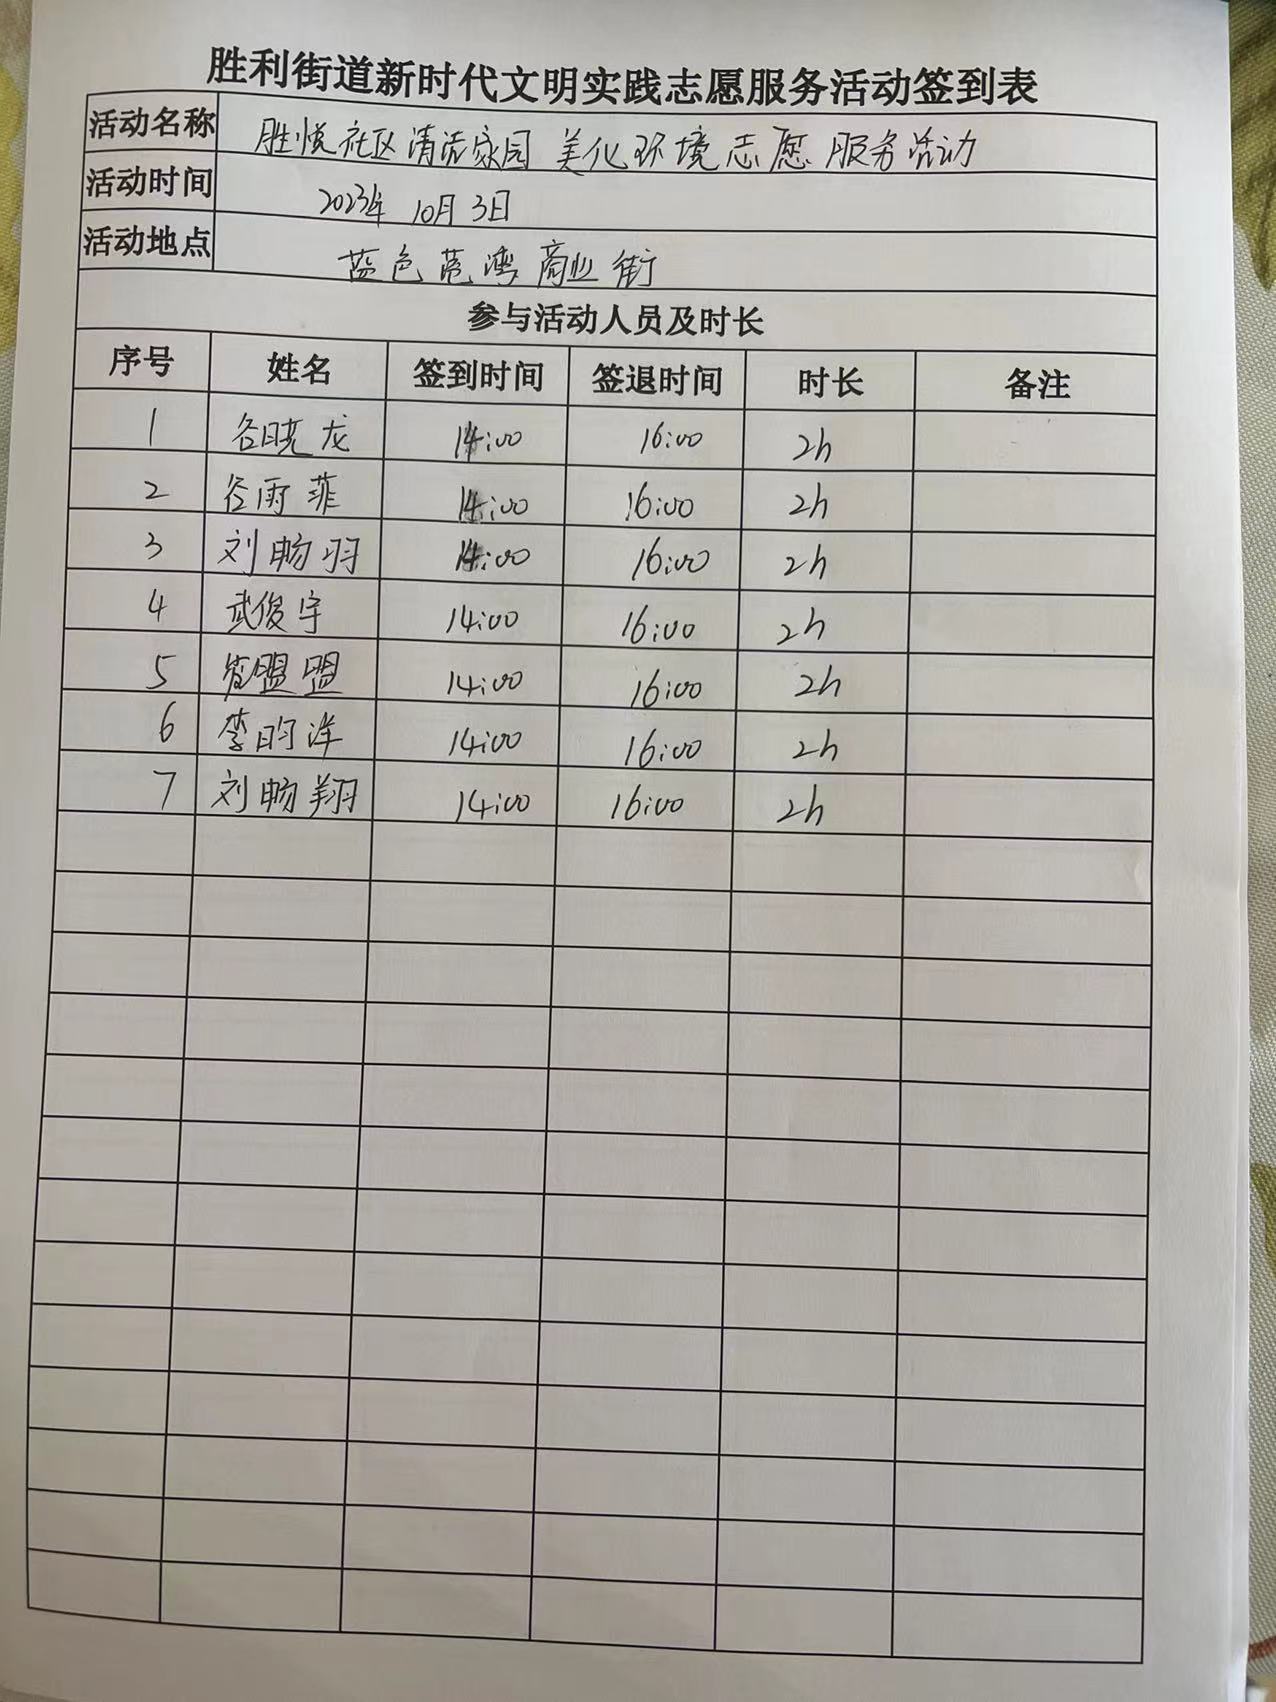 胜利街道新时代文明实践志愿服务活动签到表
活动名称 胜悦社区清洁家园 美化环境志愿服务活动
活动时间 2023年 10月3日
活动地点 蓝色港湾商业街
参与活动人员及时长
序号 姓名 签到时间 签退时间 时长 备注
1 谷晓龙 14:00 16:00 2h
2 谷雨菲 14:00 16:00 2h
3 刘畅羽 14:00 16:00 2h
4 武俊宇 14:00 16:00 2h
5 盟盟 14:00 16:00 2h
6 李昀洋 14:00 16:00 2h
7 刘畅翔 14:00 16:00 2h